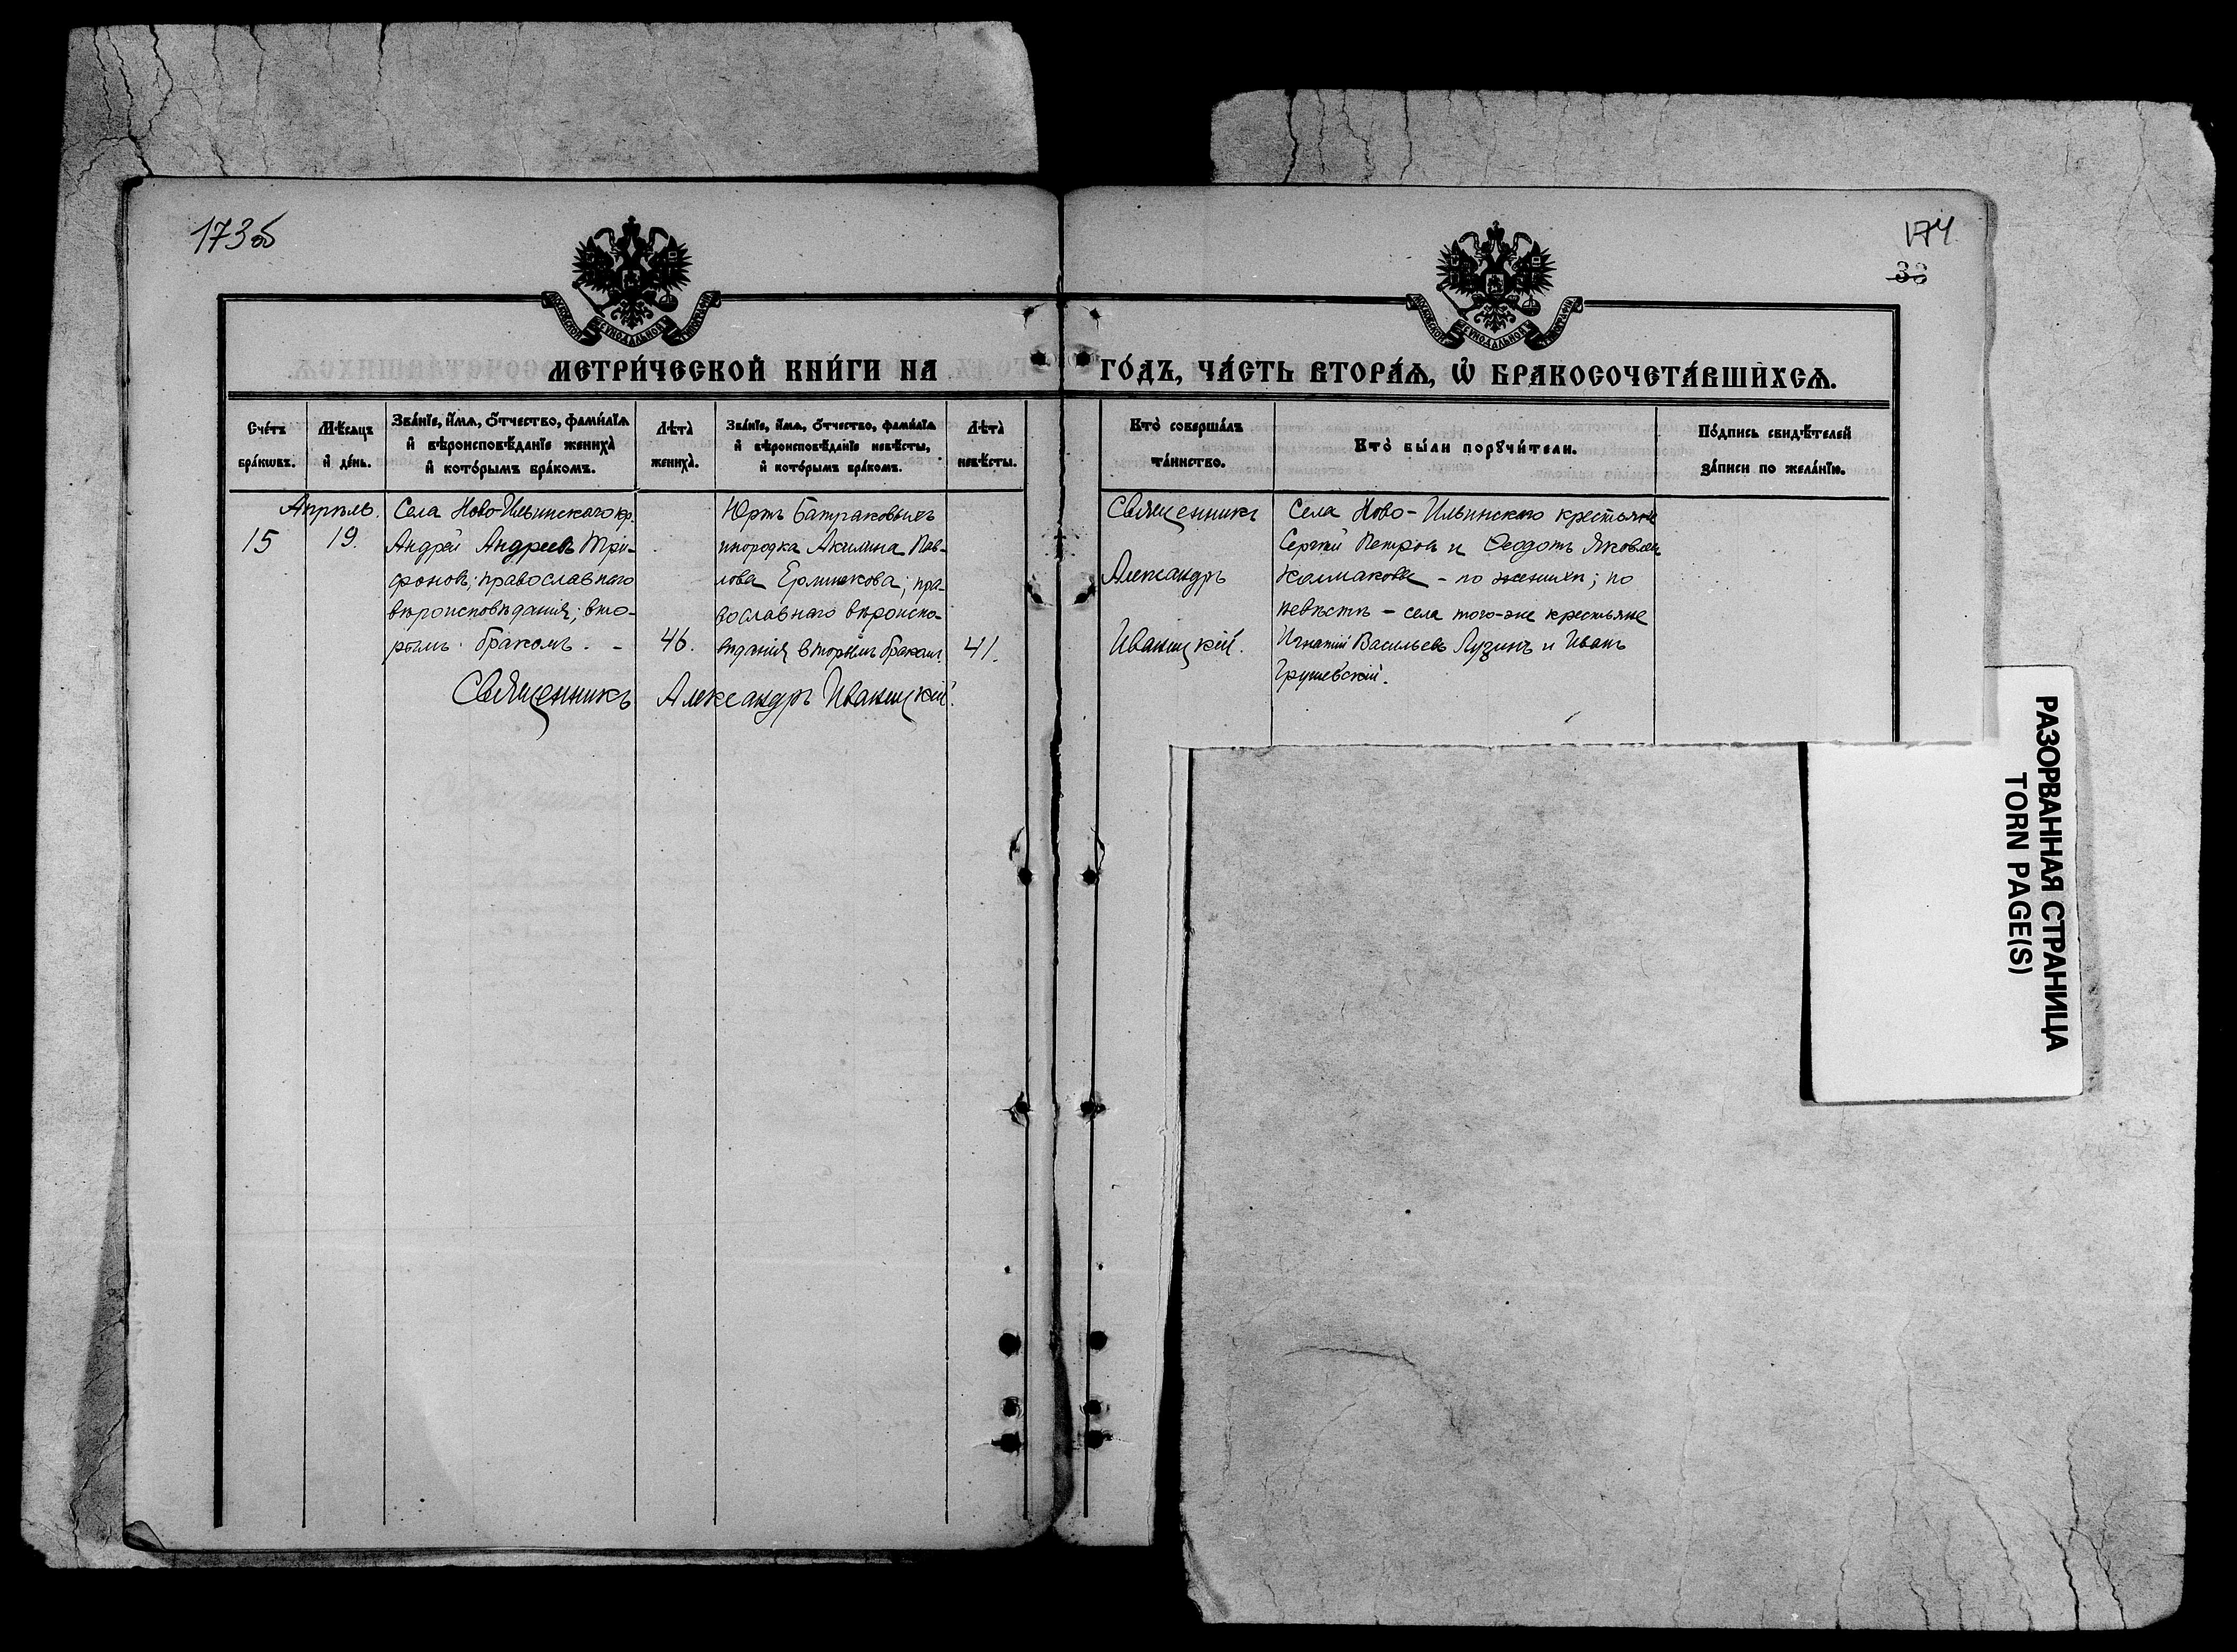 173об
174
33
МОСКОВСКОЙ СѴНОДАЛЬНОЙ ТИПОГРАФІИ
МОСКОВСКОЙ СѴНОДАЛЬНОЙ ТИПОГРАФІИ
МЕТРИ́ЧЕСКОЙ КНИ́ГИ НА
ГО́ДЪ, ЧА́СТЬ ВТОРА́Ѧ, Ѡ҆ БРАКОСОЧЕТА́ВШИХСѦ.
Сче́тъ
бра́кѡвъ.
Мѣ́сѧцъ
и҆ де́нь.
Зва́нїе, и҆́мѧ, ѻ҆́тчество, фами́лїѧ
и҆ вѣроисповѣ́данїе жениха̀
и҆ кото́рымъ бра́комъ.
Лѣта̀
жениха̀.
Зва́нїе, и҆́мѧ, ѻ҆́тчество, фами́лїѧ
и҆ вѣроисповѣ́данїе невѣ́сты,
и҆ кото́рымъ бра́комъ.
Лѣта̀
невѣ́сты.
Кто̀ соверша́лъ
та́инство.
Кто̀ бы́ли порꙋчи́тели.
По́дпись свидѣ́телей
за́писи по жела́нїю.
Апрѣль.
15
19.
Села Ново-Ильинскаго кр.
Андрей Андреевъ Три-
фоновъ; православнаго
вѣроисповѣданія; вто-
рымъ бракомъ. -
46.
Юртъ Батраковыхъ
инородка Акилина Пав-
лова Ермакова; пра-
вославнаго вѣроиспо-
вѣданія вторымъ бракомъ.
41.
Священникъ Александръ Иваницкій.
Священникъ
Александръ
Иваницкій.
Села Ново-Ильинскаго крестьяне
Сергѣй Петровъ и Ѳеодотъ Яковлевъ
Колмаковы - по женихѣ; по
невѣстѣ - села того-же крестьяне
Игнатій Васильевъ Лузинъ и Иванъ
Грушевскій.
РАЗОРВАННАЯ СТРАНИЦА
TORN PAGE(S)